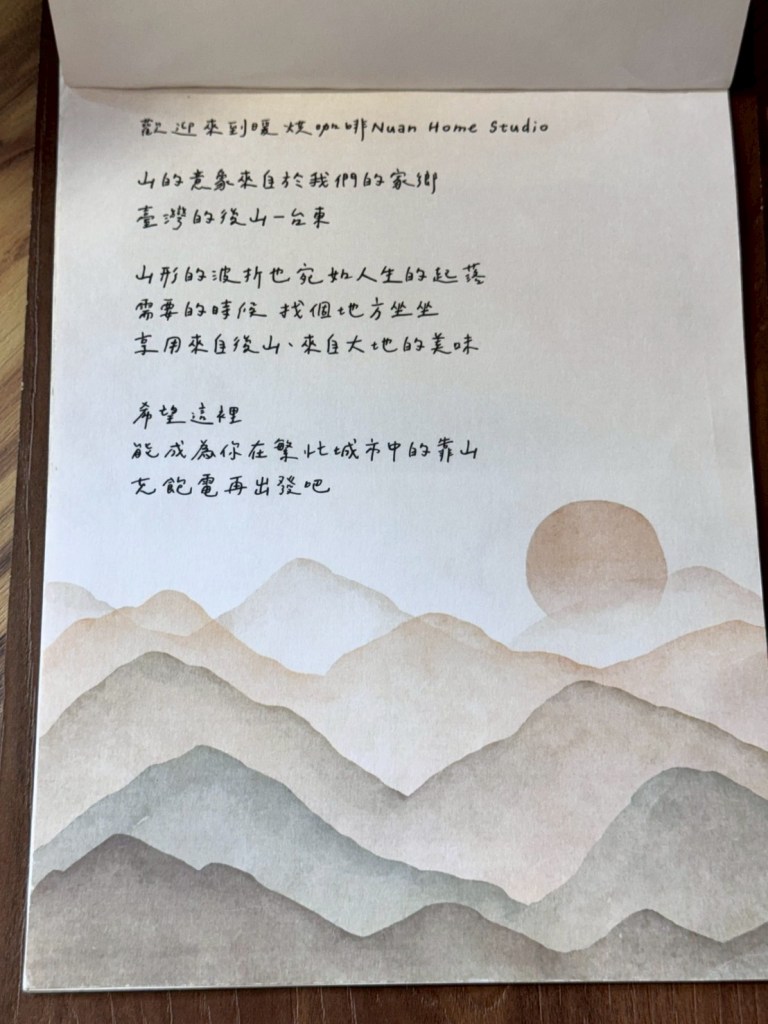 歡迎來到暖烘咖啡Nuan Home Studio
山的意象來自於我們的家鄉
臺灣的後山-台東
山形的波折也宛如人生的起落
需要的時候 找個地方坐坐
享用來自後山、來自大地的美味
希望這裡
能成為你在繁忙城市中的靠山
充飽電再出發吧